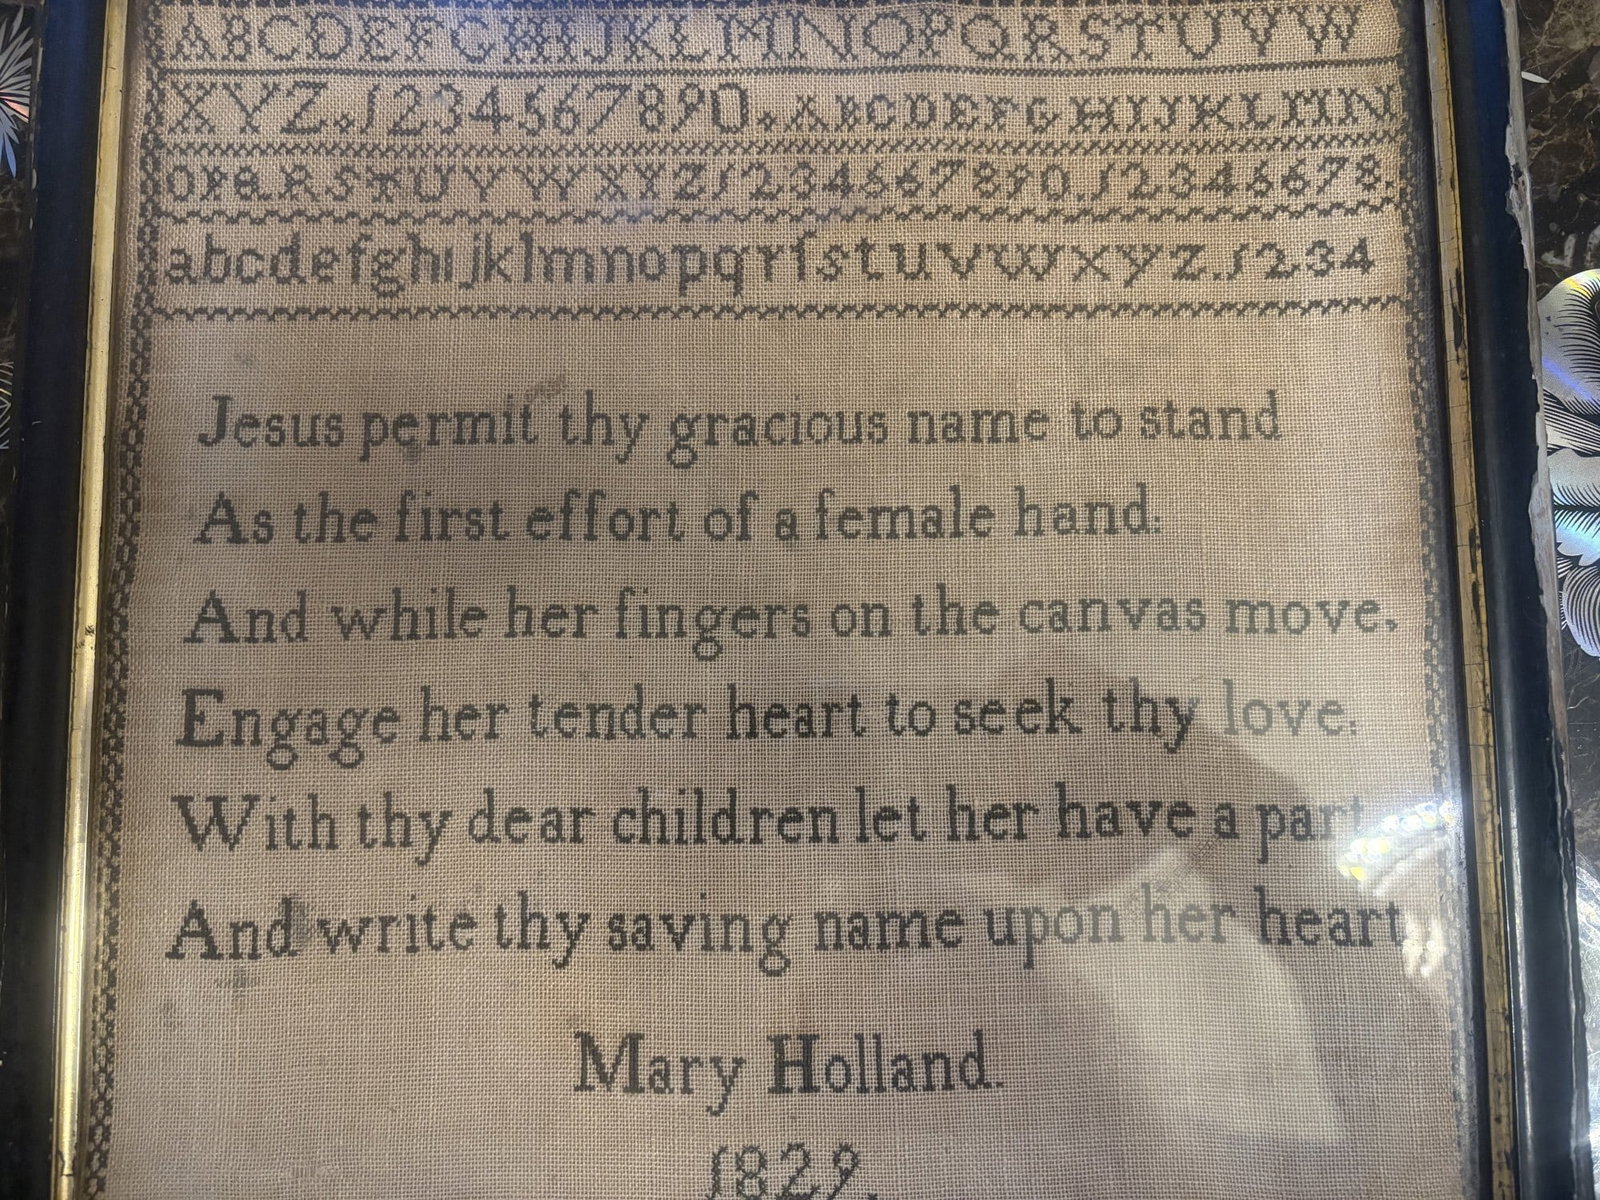 ABCDEFGHIJKLMNOPQRSTUVW
XYZ.1234567890.ABCDEFGHIJKLMN
OPQRSTUVWXYZ1234567890.12345678.
abcdefghijklmnopqrſstuvwxyz.1234
Jesus permit thy gracious name to stand
As the first effort of a female hand:
And while her fingers on the canvas move.
Engage her tender heart to seek thy love:
With thy dear children let her have a part
And write thy saving name upon her heart
Mary Holland.
1829.